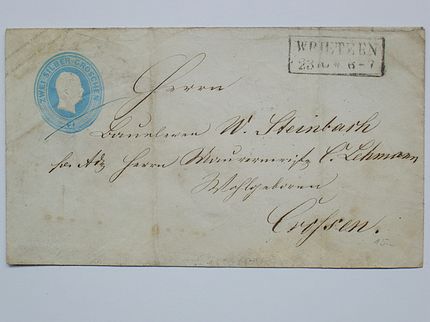 ZWEI SILBER GROSCHEN
WRIETZEN
23 10 * 6-7
Herrn
Baueleven W. Steinbach
pr. Adr. Herrn Maurermeister C. Lehmann
Wohlgeboren
Crossen.